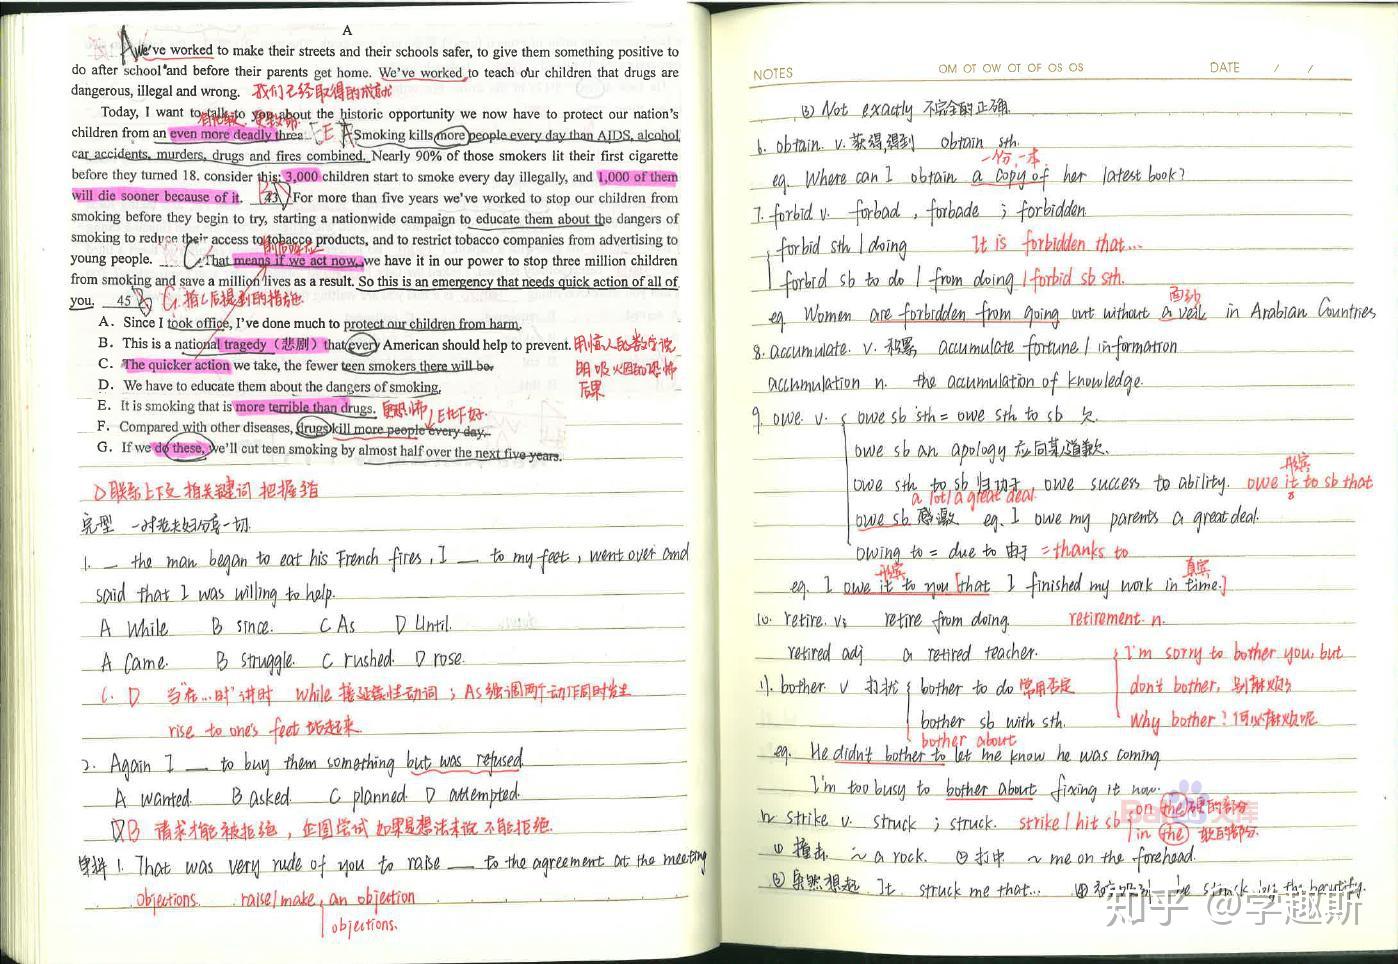 A
We've worked to make their streets and their schools safer, to give them something positive to
do after school and before their parents get home. We've worked to teach our children that drugs are
dangerous, illegal and wrong. 我们已经取得的成就
Today, I want to talk to you about the historic opportunity we now have to protect our nation's
children from an even more deadly threa E A Smoking kills more people every day than AIDS, alcohol
car accidents, murders, drugs and fires combined. Nearly 90% of those smokers lit their first cigarette
before they turned 18. consider this: 3,000 children start to smoke every day illegally, and 1,000 of them
will die sooner because of it. 43 For more than five years we've worked to stop our children from
smoking before they begin to try, starting a nationwide campaign to educate them about the dangers of
smoking to reduce their access to tobacco products, and to restrict tobacco companies from advertising to
young people. C That means if we act now, we have it in our power to stop three million children
from smoking and save a million lives as a result. So this is an emergency that needs quick action of all of
you. 45 B G.指C后提到的措施
A. Since I took office, I've done much to protect our children from harm.
B. This is a national tragedy（悲剧）that every American should help to prevent. 用惊人的数字说
C. The quicker action we take, the fewer teen smokers there will be. 明吸烟的恐怖
D. We have to educate them about the dangers of smoking. 后果
E. It is smoking that is more terrible than drugs. 更恐怖
F. Compared with other diseases, drugs kill more people every day.
G. If we do these, we'll cut teen smoking by almost half over the next five years.
①联系上下文 指关键词 把握
完型
1. _ the man began to eat his French fires, I _ to my feet, went over and
said that I was willing to help.
A While B since. C As D Until.
A Came. B struggle. C rushed. D rose.
C. D 当"在...时"讲时 While 接延续性动词；As强调两个动作同时发生
rise to one's feet 站起来
2. Again I _ to buy them something but was refused
A wanted. B asked. C planned. D attempted.
DB 请求才能被拒绝，企图尝试 如果是想法来说 不能拒绝.
1. That was very rude of you to raise _ to the agreement at the meeting
objections. raise/make an objection
objections.
NOTES OM OT OW OT OF OS OS DATE / /
③ Not exactly 不完全的正确.
6. obtain. v. 获得,得到 obtain sth.
一份,一本
eg. Where can I obtain a copy of her latest book?
7. forbid v. forbad, forbade ; forbidden
forbid sth / doing It is forbidden that...
forbid sb to do / from doing / forbid sb sth.
面纱
eg Women are forbidden from going out without a veil in Arabian Countries
8. accumulate. v. 积累 accumulate fortune / information
accumulation n. the accumulation of knowledge.
9. owe. v. owe sb sth = owe sth to sb 欠.
owe sb an apology 应向某人道歉.
形宾
owe sth to sb 归功于 owe success to ability. owe it to sb that
a lot / a great deal
owe sb 感激 eg. I owe my parents a great deal.
owing to = due to 由于 = thanks to
形宾 真宾
eg. I owe it to you [that I finished my work in time.]
10. retire. vi retire from doing. retirement n.
retired adj a retired teacher. I'm sorry to bother you, but
11. bother. v 打扰 bother to do 常用否定 don't bother, 别麻烦了
bother sb with sth. Why bother? 何必麻烦呢
bother about
eg. He didn't bother to let me know he was coming
I'm too busy to bother about fixing it now.
on the 硬的部分
12 strike v. struck ; struck. strike / hit sb in the 软的部分.
① 撞击 ~ a rock. ② 打中 ~ me on the forehead.
③ 突然想起 It struck me that... ④
Bai 文库
知乎 @学趣斯